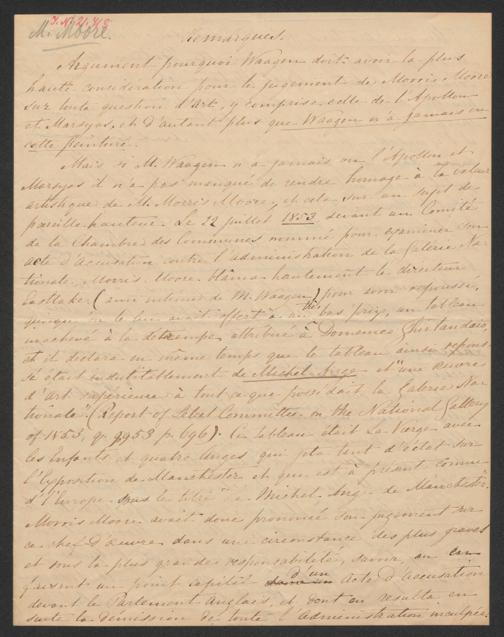 J.N. 21.418
M. Moore.
Remarques.
Argument pourquoi Waagen doit avoir la plus
haute consideration pour le jugement de Morris Moore
sur toute question d'Art, y comprise celle de l'Apollon
et Marsyas, et d'autant plus que Waagen n'a jamais vu
cette peinture.
Mais si M. Waagen n'a jamais vu l'Apollon et
Marsyas il n'a pas manqué de rendre homage à la valeur
artistique de M. Morris Moore, et cela sur un sujet de
pareille hauteur. Le 22 juillet 1853 devant un Comité
de la Chambre des Communes nommé pour examiner son
acte d'accusation contre l'administration de la Galerie Na-
tionale, Morris Moore blâma hautement le directeur
Eastlake (ami intime de M. Waagen) pour avoir repoussé,
le lui avait offert à très bas prix, un tableau
inachevé à la detrempe, attribué à Domenico Ghirlandaio,
et il déclara en même temps que le tableau ainsi repous-
sé était indubitablement de Michel Ange et "une œuvre
d'art supérieure à tout ce que possédait la Galerie Na-
tionale" (Report of Select Committee on the National Gallery
of 1853, q. 9953 p. 696). Ce tableau était La Vierge avec
les Enfants et quatre Anges qui jeta tant d'éclat sur
l'Exposition de Manchester et qui est à présent connu
d'l'Europe sous le titre de Michel Ange de Manchester.
Morris Moore avait donc prononcé son jugement sur
ce chef d'œuvre dans une circonstance des plus graves
et sous la plus grande responsabilité, savoir, en en
faisant un point capital d'un Acte d'accusation
devant le Parlement Anglais, et dont en resulta en-
suite la démission de toute l'Administration inculpée.